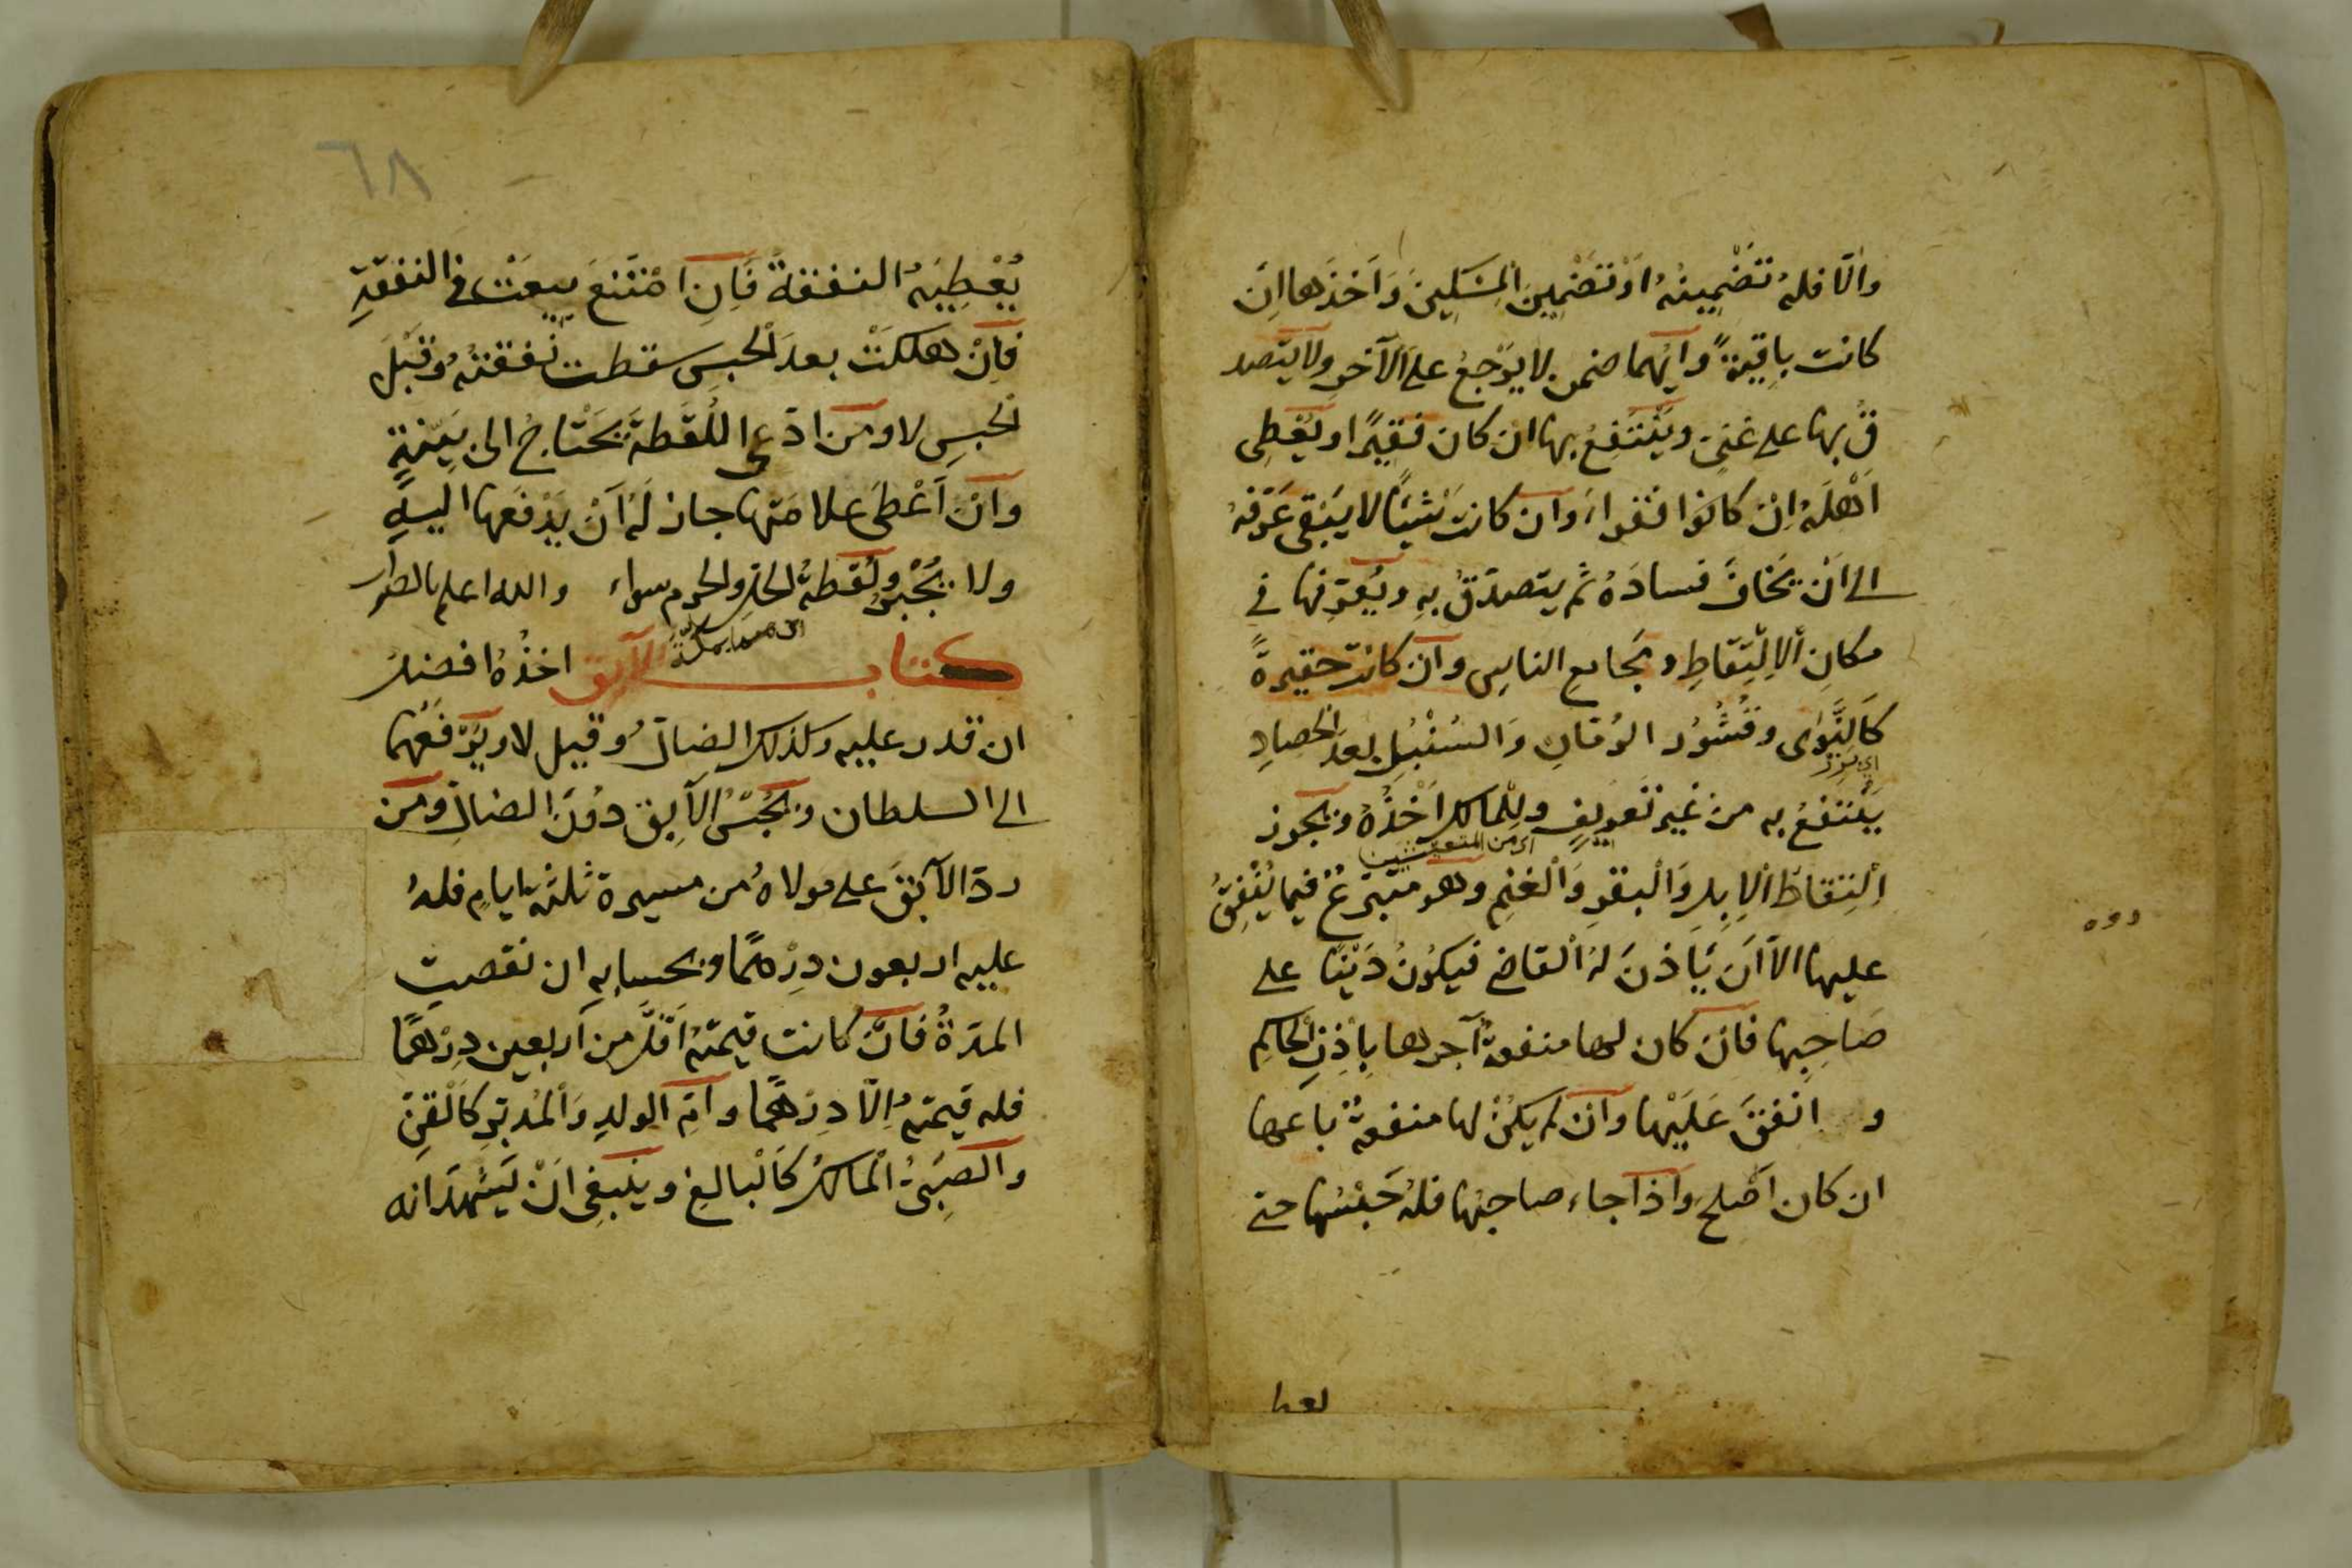 والّا فلهُ تَضْمِينُهُ اَوْ تَضْمِينَ المِسْكِينَ وَاَخذَها اِنْ
كانت باقِيَةً وَايّهما ضمن لا يَرْجعُ على الآخرِ ولا يتصد
قُ بها على غنىٍ ويَنْتَفِعُ بها ان كان فقيرًا او يُعْطِى
اَهْلَهُ اِنْ كانُوا فُقراءَ وَان كانت شَيئًا لا يَبْقى عَرَّفهُ
الى اَنْ يَخافَ فسادَهُ ثم يتصدّقُ بِهِ ويُعَرّفها فى
مكانِ الاِلْتِقاطِ ومَجامعِ الناسِ وان كانت حقيرةً
كَالنَّوٰى وقُشُورِ الرُمّانِ وَالسُنْبُلِ بعدَ الحصادِ
يَنْتفعُ به من غيرِ تعريفٍ ولِلْمالكِ اَخْذُهُ ويجوز
اى من المتعيشين
اِلْتِقاطُ الاِبِلِ وَالْبقرِ وَالْغنمِ وهو متبرّعٌ فيما يُنْفِقُ
عليها الاّ اَن يَاذنَ لهُ القاضى فيكُونُ دَيْنًا على
صَاحِبِها فان كان لها منفعةٌ آجرها بِاِذْنِ الحاكِمِ
و انفقَ عَلَيْها وان لم يَكُنْ لها منفعةٌ باعها
ان كان اَصْلحَ وَاذا جاء صاحبُها فلهُ حَبْسُها حتى
٦٨
يُعْطِيَهُ النفقةَ فَاِنِ امْتَنعَ بِيعَتْ فى النفقةِ
فاِنْ هلكتْ بعدَ الحبسِ سقطت نفقتهُ وقبْلَ
الحبسِ لا ومن ادّعى اللُقَطةَ يَحْتاجُ الى بَيّنةٍ
وَان اَعْطَى علامَتها جاز لَهُ اَنْ يَدْفَعها اليهِ
ولا يُجْبَرُ ولُقَطةُ الحلِّ والحرمِ سواء والله اعلم بالصواب
كتاب الآبق اخذُهُ افضلُ
ان قدر عليه وكذلك الضالُّ وقيل لا ويَرْفعُهما
الى السلطان ويُحْبسُ الآبِق دُونَ الضالِّ ومن
ردّ الآبقَ على مولاهُ من مسيرة ثلثة ايامٍ فلهُ
عليه اربعون دِرْهمًا وبحسابِهِ ان نقصتِ
المدّةُ فان كانت قيمتهُ اَقلَّ من اَربعين دِرْهمًا
فله قيمتهُ اِلّا دِرْهمًا واُمّ الولدِ وَالْمُدبّرِ كَالْقنِّ
والصَبِىُّ الْمالكُ كَالْبالغِ وينبغِى اَنْ يَشْهدَ انه